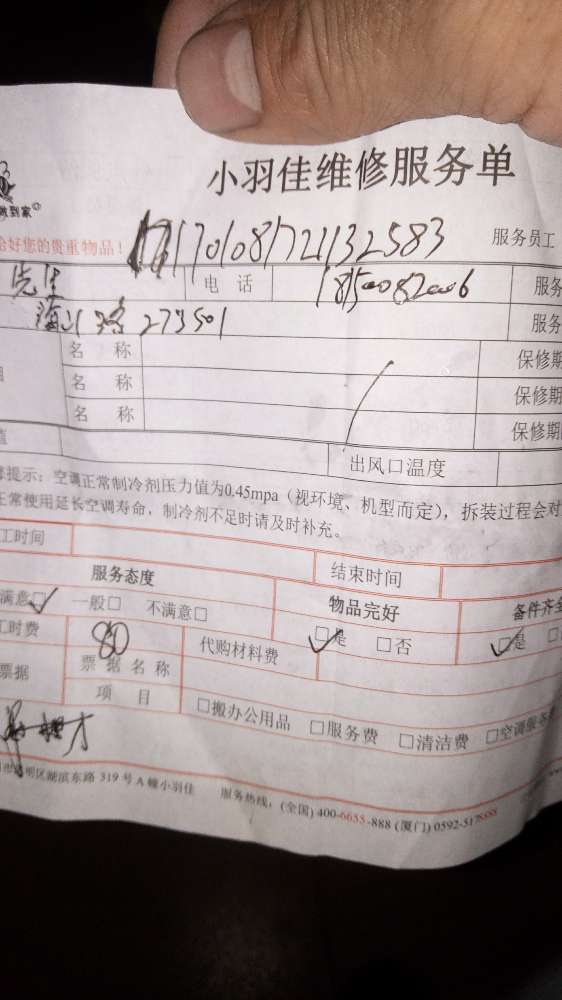 小羽佳维修服务单
做到家
好您的贵重物品！ 1701081721132583 服务员工
先生 电话 18150082006 服务
273501 服务
名称 保修期
名称 保修期
名称 保修期
值 出风口温度
提示：空调正常制冷剂压力值为0.45mpa（视环境、机型而定），拆装过程会对
正常使用延长空调寿命，制冷剂不足时请及时补充。
工时间 结束时间
服务态度 物品完好 备件齐全
满意□✓ 一般□ 不满意□ □✓是 □否 □✓是
工时费 80 代购材料费
票据 票据名称
项目 □搬办公用品 □服务费 □清洁费 □空调服务
明区湖滨东路 319 号 A 幢小羽佳 服务热线：(全国) 400-6655-888 (厦门) 0592-5178888